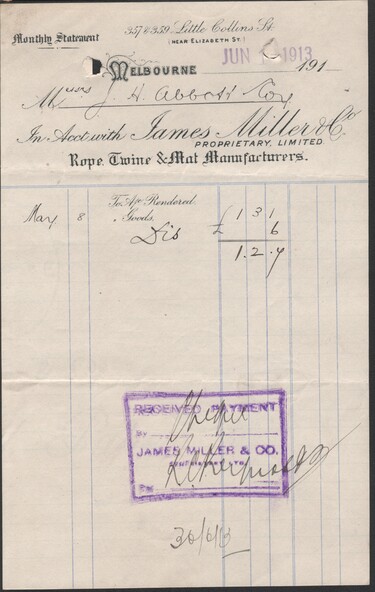 Monthly Statement
357 & 359 Little Collins St.
(NEAR ELIZABETH ST.)
JUN 1913
MELBOURNE 191
Messrs J. H. Abbott & Coy
In Acct with James Miller & Co
PROPRIETARY, LIMITED.
Rope, Twine & Mat Manufacturers.
To A/c Rendered
May 8 " Goods £ 1 3 1
Dis 6
1. 2. 7
RECEIVED PAYMENT
BY Cheque
JAMES MILLER & CO.
PROPRIETARY LTD.
30/6/13